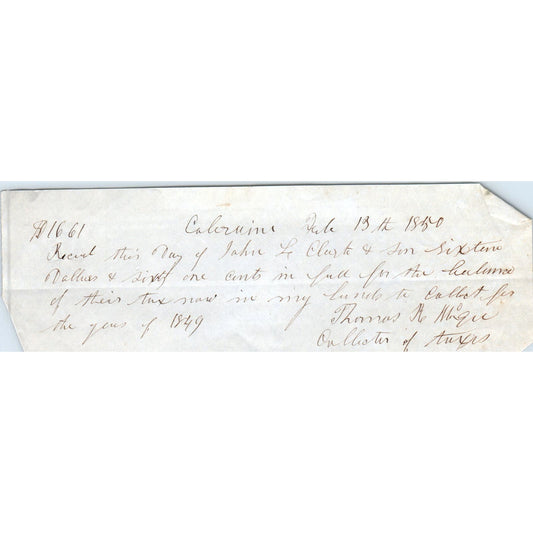 $16 61 Coleraine Feb 13th 1850
Recevd this Day of John L Clark & Son Sixteen
Dollars & Sixty one cents in full for the balance
of their tax now in my hands to Collect for
the year of 1849
Thomas R McGee
Collector of taxes